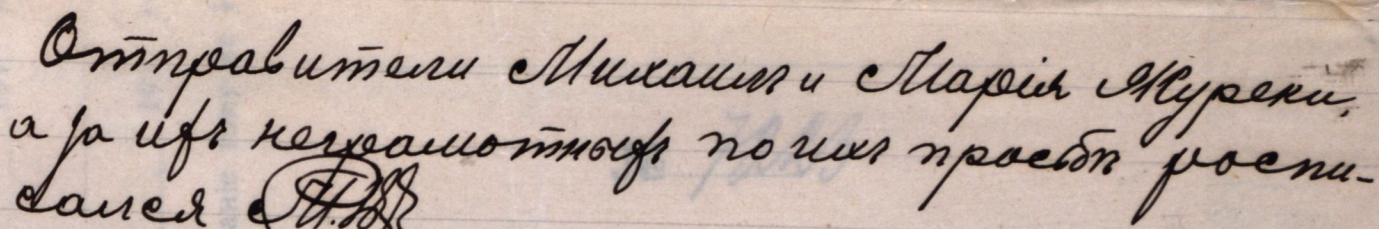 Отправители Михаилъ и Марія Журеки,
а за ихъ неграмотныхъ по ихъ просьбѣ роспи-
сался